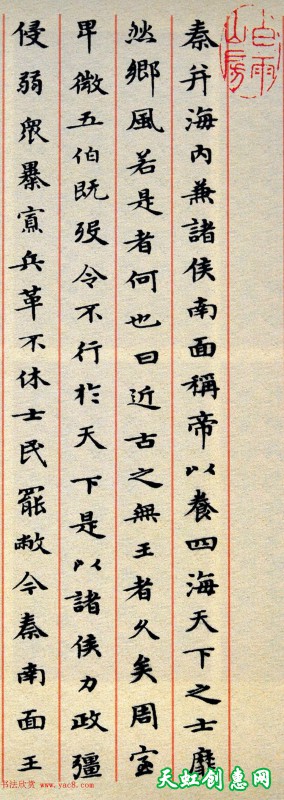 秦并海内兼諸侯南面稱帝以養四海天下之士靡
然鄉風若是者何也曰近古之無王者久矣周室
卑微五伯既歿令不行於天下是以諸侯力政彊
侵弱眾暴寡兵革不休士民罷敝今秦南面王
白雨
山房
书法欣赏 www.yac8.com
天虹创惠网